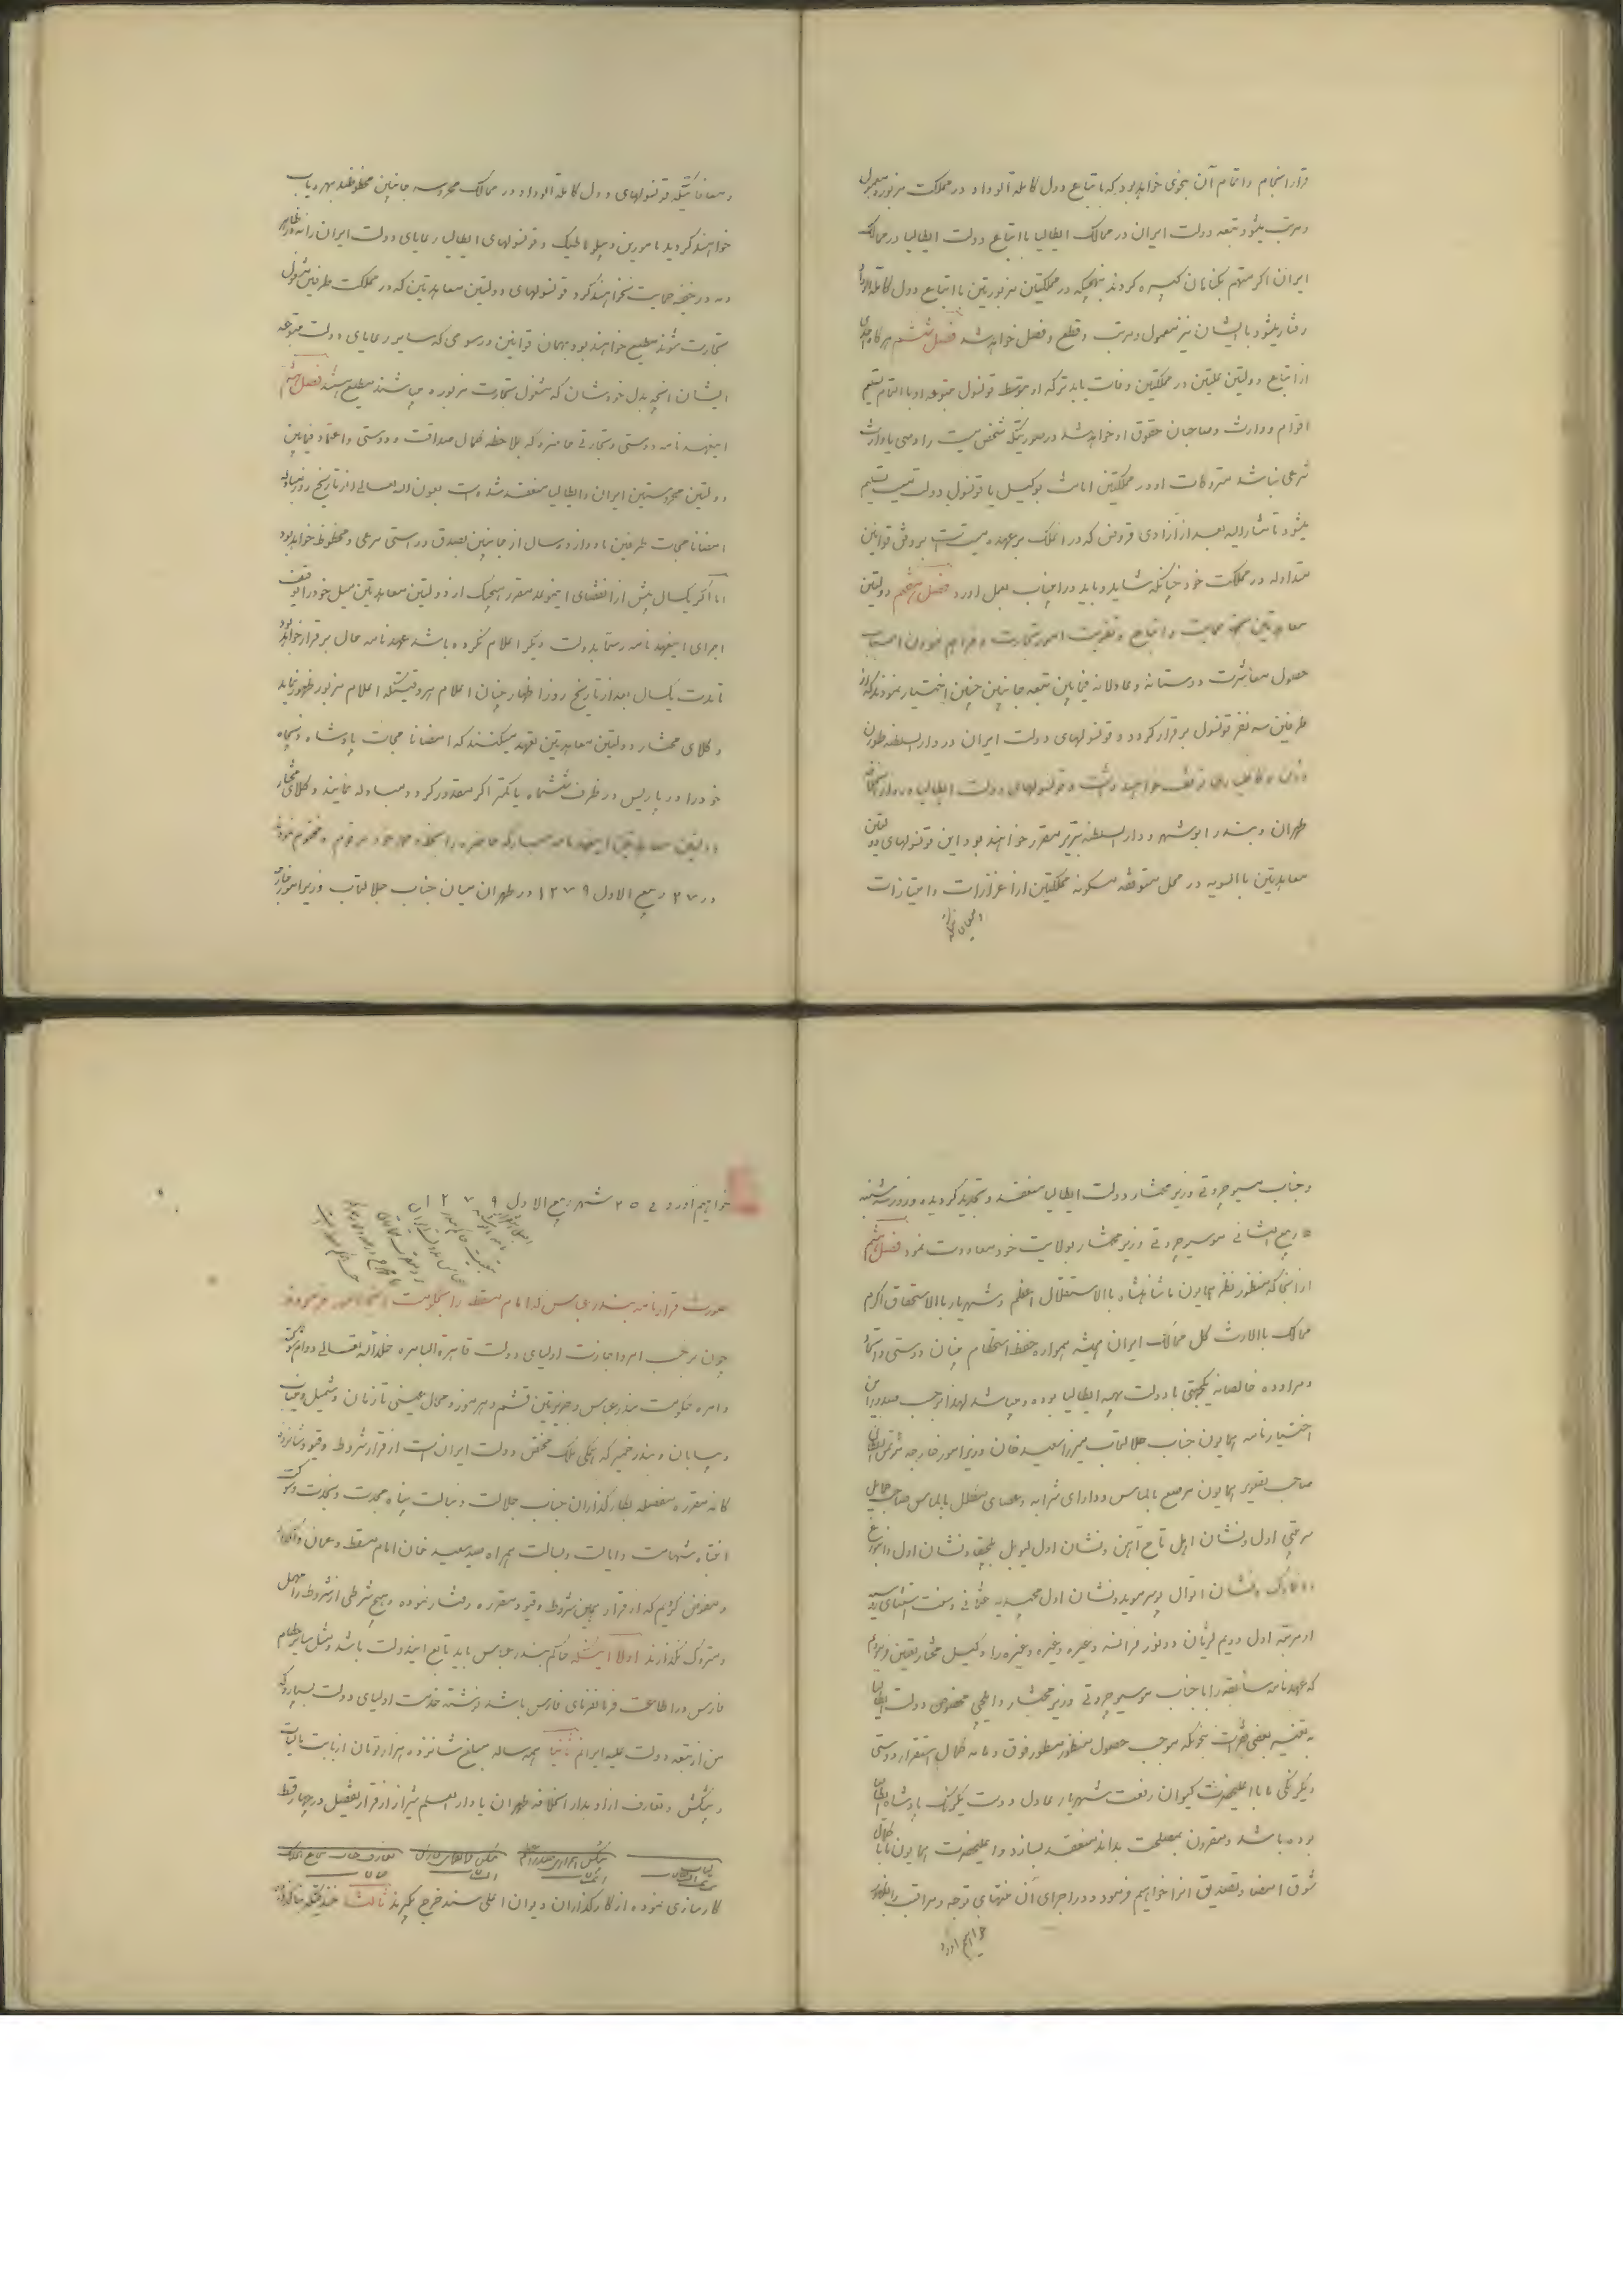 قرار انجام و اتمام آن بنحوی خواهد بود که با تبایع دول کاملة الوداد در مملکت مزبوره معمول
و مرتب میشود و تبعه دولت ایران در ممالک ایطالیا با اتباع دولت ایطالیا در ممالک
ایران اگر متهم بگناهان کبیره گردند بنهجیکه در مملکتین مزبورتین با اتباع دول کاملة الوداد
رفتار میشود با ایشان نیز معمول و مرتب و قطع و فصل خواهد شد فصل ششم هرگاه احدی
از اتباع دولتین علیتین در مملکتین وفات یابد ترکه او بتوسط قونسول متبوعه او بالتمام تسلیم
اقوام و وارث و صاحبان حقوق او خواهد شد در صورتیکه شخص میت را وصی یا وارث
شرعی نباشد متروکات او در مملکتین امانت بوکیل یا قونسول دولت میت تسلیم
میشود تا مشارالیه بعد از آزادی قروض که در آنملک بر عهده میت است بر وفق قوانین
متداوله در مملکت خود چنانکه شاید و باید در اینباب بعمل آورد فصل هفتم دولتین
معاهدتین بجهة حمایت و اتباع و تقویت امور تجارت و فراهم نمودن اسباب
حصول معاشرت دوستانه و عادلانه فیمابین تبعه جانبین چنین اختیار نمودند که از
طرفین سه نفر قونسول برقرار گردد و قونسولهای دولت ایران در دار السلطنه طورن
توقف خواهند داشت و قونسولهای دولت ایطالیا در دار الخلافه
طهران و بندر ابوشهر و دار السلطنه تبریز مقرر خواهند بود و این قونسولهای دولتین
معاهدتین بالسویه در محل متوقفه مسکونه مملکتین از اعزازات و امتیازات
و معافاتیکه قونسولهای دول کاملة الوداد در ممالک محروسه جانبین محظوظند بهره یاب
خواهند گردید مامورین دیپلوماتیک و قونسولهای ایطالیا رعایای دولت ایران را نه در ظاهر
و نه در خفیه حمایت نخواهند کرد قونسولهای دولتین معاهدتین که در مملکت طرفین مشغول
تجارت شوند مطیع خواهند بود بهمان قوانین و رسومی که سایر رعایای دولت متبوعه
ایشان انچه بدل خودشان که مشغول تجارت مزبوره میباشند مطیع هستند فصل هشتم
اینعهد نامه دوستی و تجارتی حاضره که بملاحظه کمال صداقت و دوستی و اعتماد فیمابین
دولتین محروستین ایران و ایطالیا منعقد شده است بعون الله تعالی از تاریخ روز مبادله
امضا نامجات طرفین تا دوازده سال از جانبین بصدق و راستی مرعی و محفوظ خواهد بود
اما اگر یکسال پیش از انقضای اینموعد مقرر هیچیک از دولتین معاهدتین میل خود را بتوقف
اجرای اینعهد نامه رسما بدولت دیگر اعلام نکرده باشد عهد نامه حال برقرار خواهد بود
تا مدت یکسال بعد از تاریخ روز اظهار چنان اعلام هر وقتیکه اعلام مزبور ظهور نماید
وکلای مختار دولتین معاهدتین تعهد میکنند که امضا نامجات پادشاه و پنجاه
خود را در پاریس در ظرف ششماه یا کمتر اگر مقدور گردد مبادله نمایند وکلای مختار
دولتین معاهدتین اینعهد نامه مبارکه حاضره را بخط و مهر خود مرقوم و مختوم نمودند
در ۲۷ ربیع الاول ۱۲۷۹ در طهران میان جناب جلالتمآب وزیر امور خارجه
و جناب مسیو چروتی وزیر مختار دولت ایطالیا منعقد و تجدید گردیده و روز سه شنبه
۵ ربیع الثانی موسیو چروتی وزیر مختار بولایت خود معاودت نمود فصل
از انجا که منظور نظر همایون ما شاهنشاه بالاستقلال اعظم و شهریار بالاستحقاق اکرم
ممالک بالارث کل ممالک ایران همیشه همواره حفظ استحکام بنیان دوستی و اتحاد
و مراوده خالصانه یکجهتی با دولت بهیه ایطالیا بوده و میباشد لهذا بموجب صدور این
اختیار نامه همایون جناب جلالتمآب میرزا سعید خان وزیر امور خارجه
صاحب تصویر همایون مرصع بالماس و دارای شرابه و عصای مکلل بالماس صاحب حمایل
سرتیپی اول و نشان اول تاج آهن و نشان اول لیوپلد بلجیقا و نشان اول
نشان اول مجیدیه عثمانی
از مرتبه اول دویم لژیان دونور فرانسه و غیره وغیره وغیره را وکیل مختار تعیین فرمودیم
که عهد نامه سابقه را با جناب موسیو چروتی وزیر مختار و ایلچی مخصوص دولت ایطالیا
به تغییر بعضی فقرات بنحویکه موجب حصول منظور مسطور فوق و مایه کمال استقرار دوستی
و یگانگی ما با اعلیحضرت کیوان رفعت شهریار عادل و دوست یکرنگ پادشاه ایطالیا
بوده باشد و مقرون بمصلحت بداند منعقد بسازد و اعلیحضرت همایون ما با کمال
شوق امضا و تصدیق انرا خواهیم فرمود و در اجرای آن منتهای توجه و مراقبت را بظهور
خواهیم آورد
خواهیم آورد فی ۲۵ شهر ربیع الاول ۱۲۷۹
صورت قرار نامه بندر عباس که امام مسقط را بحکومت انجا
چون بر حسب امر و اجازت اولیای دولت قاهرة الباهره خلد الله تعالی دوام شوکته
و امره حکومت بندر عباس و جزیرتین قشم و هرمز و محال عیسینی تازیان و شمیل و میناب
و بیابان و بندر خمیر که همگی ملک مختص دولت ایران است از قرار شروط و قیود شانزده
گانه مقرره مفصله بکارگذاران جناب جلالت و نبالت پناه مجدت و نجدت و شوکت
انتباه شهامت و ایالت و بسالت همراه سید سعید خان امام مسقط و عمان واگذار
و مفوض کردیم که از قرار همین شروط و قیود مقرره رفتار نموده و هیچ شرطی از شروط را مهمل
و متروک نگذارند اولا اینکه حاکم بندر عباس باید تابع ایندولت باشد و مثل سایر حکام
فارس در اطاعت فرمانفرمای فارس باشد و نوشته خدمت اولیای دولت بسپارد که
من از تبعه دولت علیه ایرانم ثانیا همه ساله مبلغ شانزده هزار تومان از بابت مالیات
و پیشکش و تعارف از او بدار الخلافه طهران یا دار العلم شیراز از قرار تفصیل در چهار قسط
کارسازی نموده از کارگذاران دیوان اعلی سند خرج بگیرند ثالثا